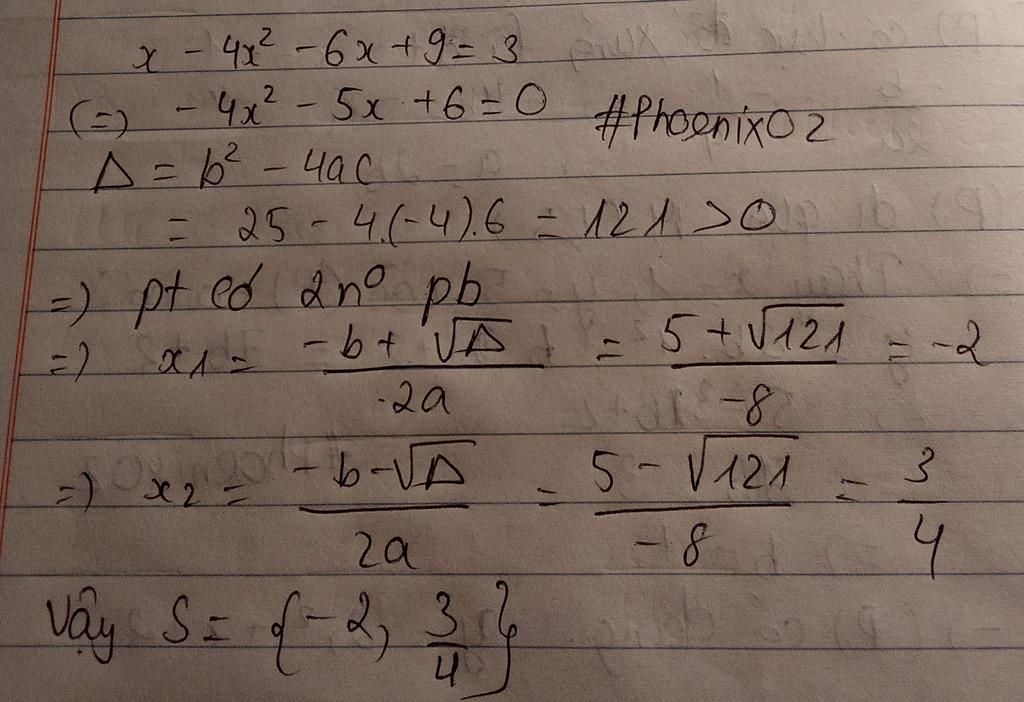 x - 4x² - 6x + 9 = 3
(=) - 4x² - 5x + 6 = 0 #Phoenix02
Δ = b² - 4ac
= 25 - 4.(-4).6 = 121 > 0
=) pt có 2n⁰ pb
=) x1 = (-b + √Δ)/(2a) = (5 + √121)/(-8) = -2
=) x2 = (-b - √Δ)/(2a) = (5 - √121)/(-8) = 3/4
Vậy S = {-2, 3/4}